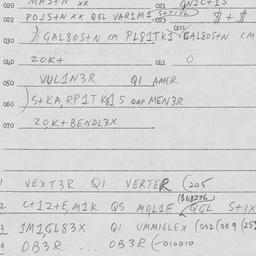 020 MAS+N XX 021 QNIC+1S
022 POJS+N XX QGL VAR1M1 S+TIVL 023
030 ) GALBOS+N CM PL91TK1 GALBOS+N CM
040 ZOK+ 041 O
050 VUL1N3R Q1 AMER
060 S+KA,RP1TK81S QAP MEN3R
070 ZOK+BENDL3X
1 VEXT3R Q1 VERTER (205
2 C+1Z+E,M1K QS MOL1F (808276 QGL S+1X
3 1M1GL83X Q1 UMMIGLEX (002(009(25
4 OB3R ... OB3R (-010010